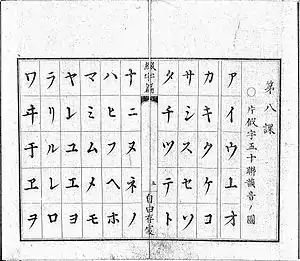 第八課
○片假字五十聯讀音ノ圖
アイウエオ
カキクケコ
サシスセソ
タチツテト
綴字篇
五
自由
ナニヌネノ
ハヒフヘホ
マミムメモ
ヤ𛄠ユエヨ
ラリルレロ
ワヰ于ヱヲ